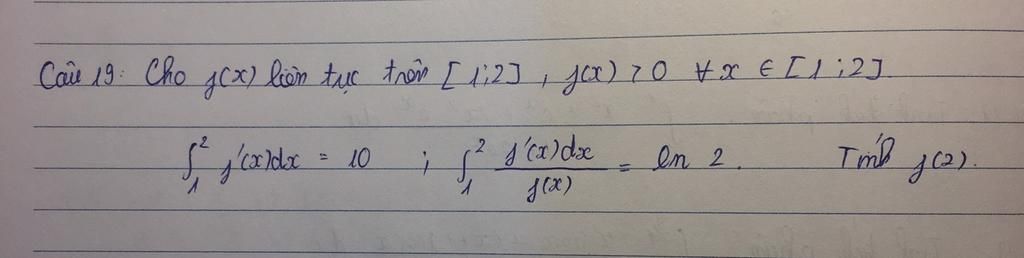 Câu 19: Cho f(x) liên tục trên [1;2], f(x) > 0 ∀x ∈ [1;2]
∫₁² f'(x)dx = 10 ; ∫₁² f'(x)dx / f(x) = ln 2. Tính f(2).